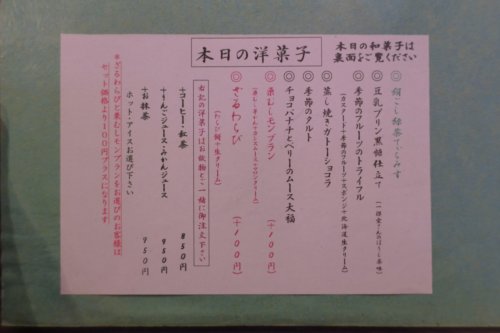 本日の洋菓子
本日の和菓子は
裏面をご覧ください
◎絹ごし緑茶てぃらみす
◎豆乳プリン黒糖仕立て
◎季節のフルーツのトライフル
(カスタード+季節のフルーツ+スポンジ+北海道生クリーム)
◎蒸し焼きガトーショコラ
◎季節のタルト
◎チョコバナナとベリーのムース大福
◎栗むしモンブラン (+100円)
◎ざるわらび (+100円)
(わらび餅+生クリーム)
右記の洋菓子はお飲物と一緒に御注文下さい
+コーヒー・紅茶 850円
+りんごジュース・みかんジュース 950円
+お抹茶 950円
ホット・アイスお選び下さい
※ざるわらびと栗むしモンブランをお選びのお客様は
セット価格より100円プラスになります